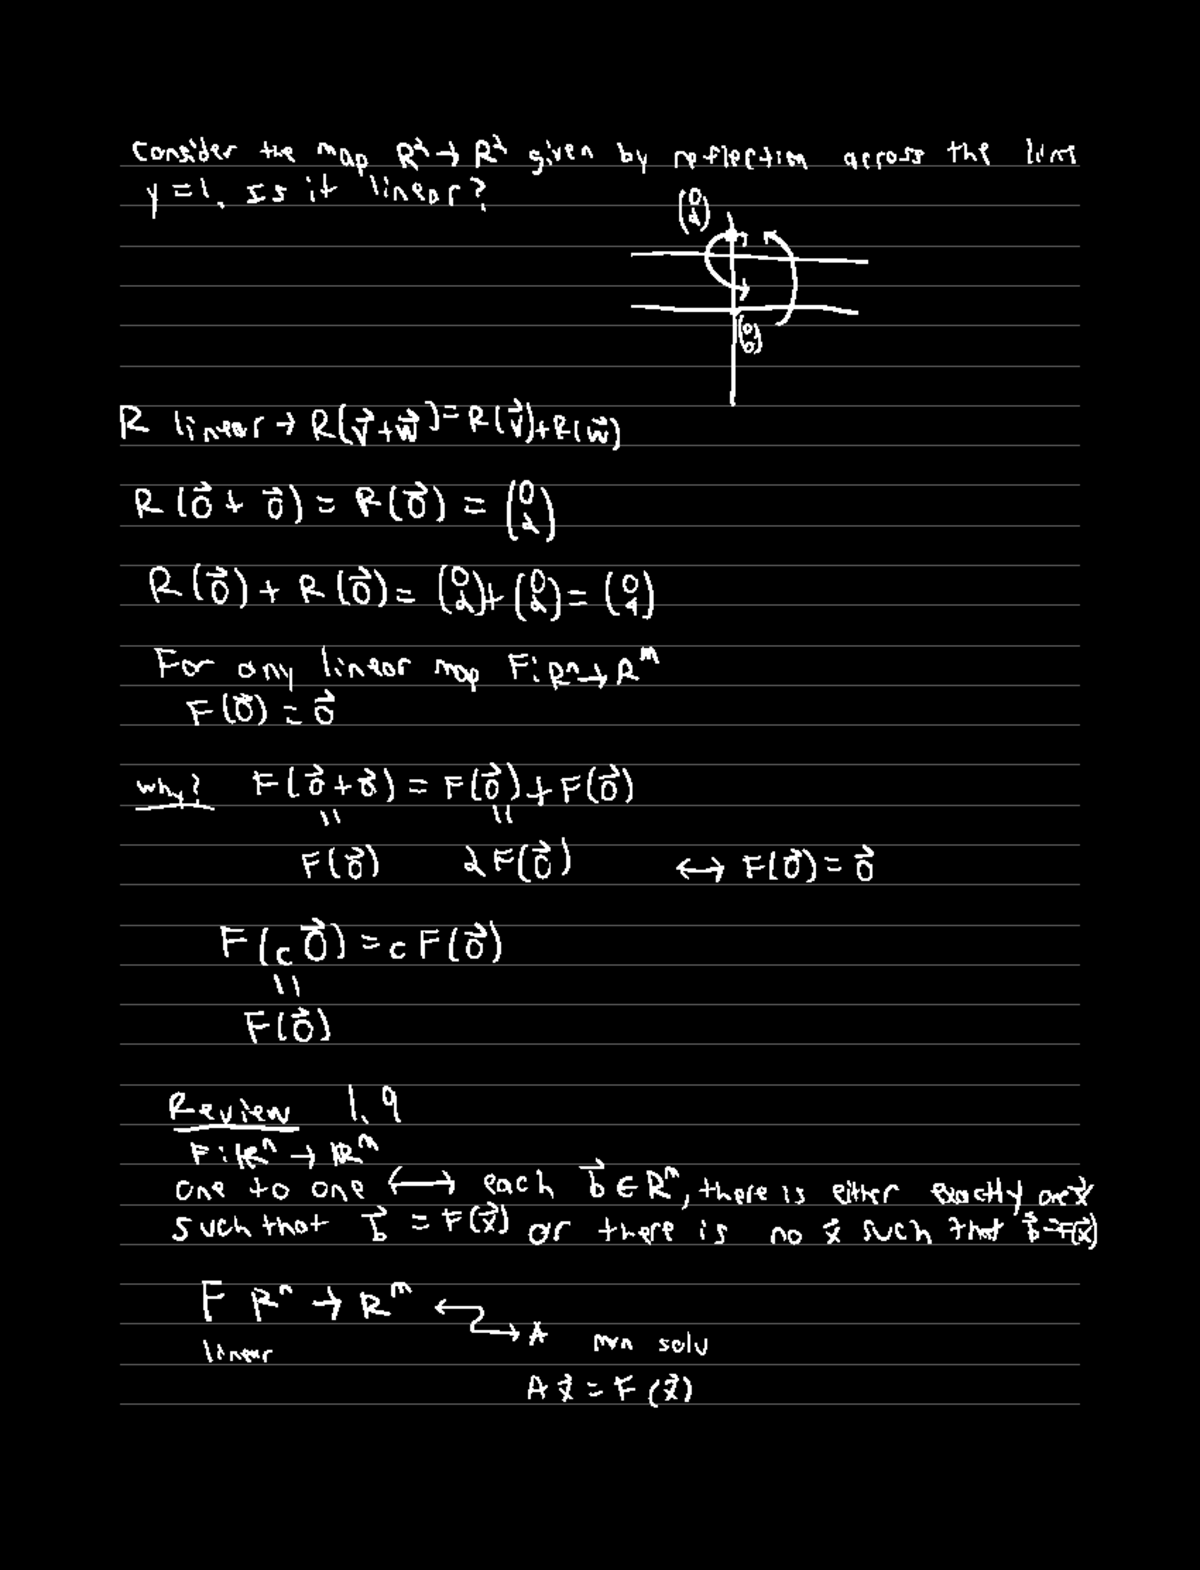 Consider the map R² → R² given by reflection across the line
y = 1. Is it linear?
(0 2)
(0 0)
R linear → R(v⃗+w⃗) = R(v⃗)+R(w⃗)
R(0⃗ + 0⃗) = R(0⃗) = (0 2)
R(0⃗) + R(0⃗) = (0 2) + (0 2) = (0 4)
For any linear map F: Rⁿ → Rᵐ
F(0⃗) = 0⃗
why? F(0⃗+0⃗) = F(0⃗) + F(0⃗)
= =
F(0⃗) 2F(0⃗) ↔ F(0⃗) = 0⃗
F(c0⃗) = cF(0⃗)
=
F(0⃗)
Review 1.9
F: Rⁿ → Rᵐ
one to one ↔ each b⃗ ∈ Rᵐ, there is either exactly one x⃗
such that b⃗ = F(x⃗) or there is no x⃗ such that b⃗ = F(x⃗)
F Rⁿ → Rᵐ ↔ A
linear mxn solu
Ax⃗ = F(x⃗)